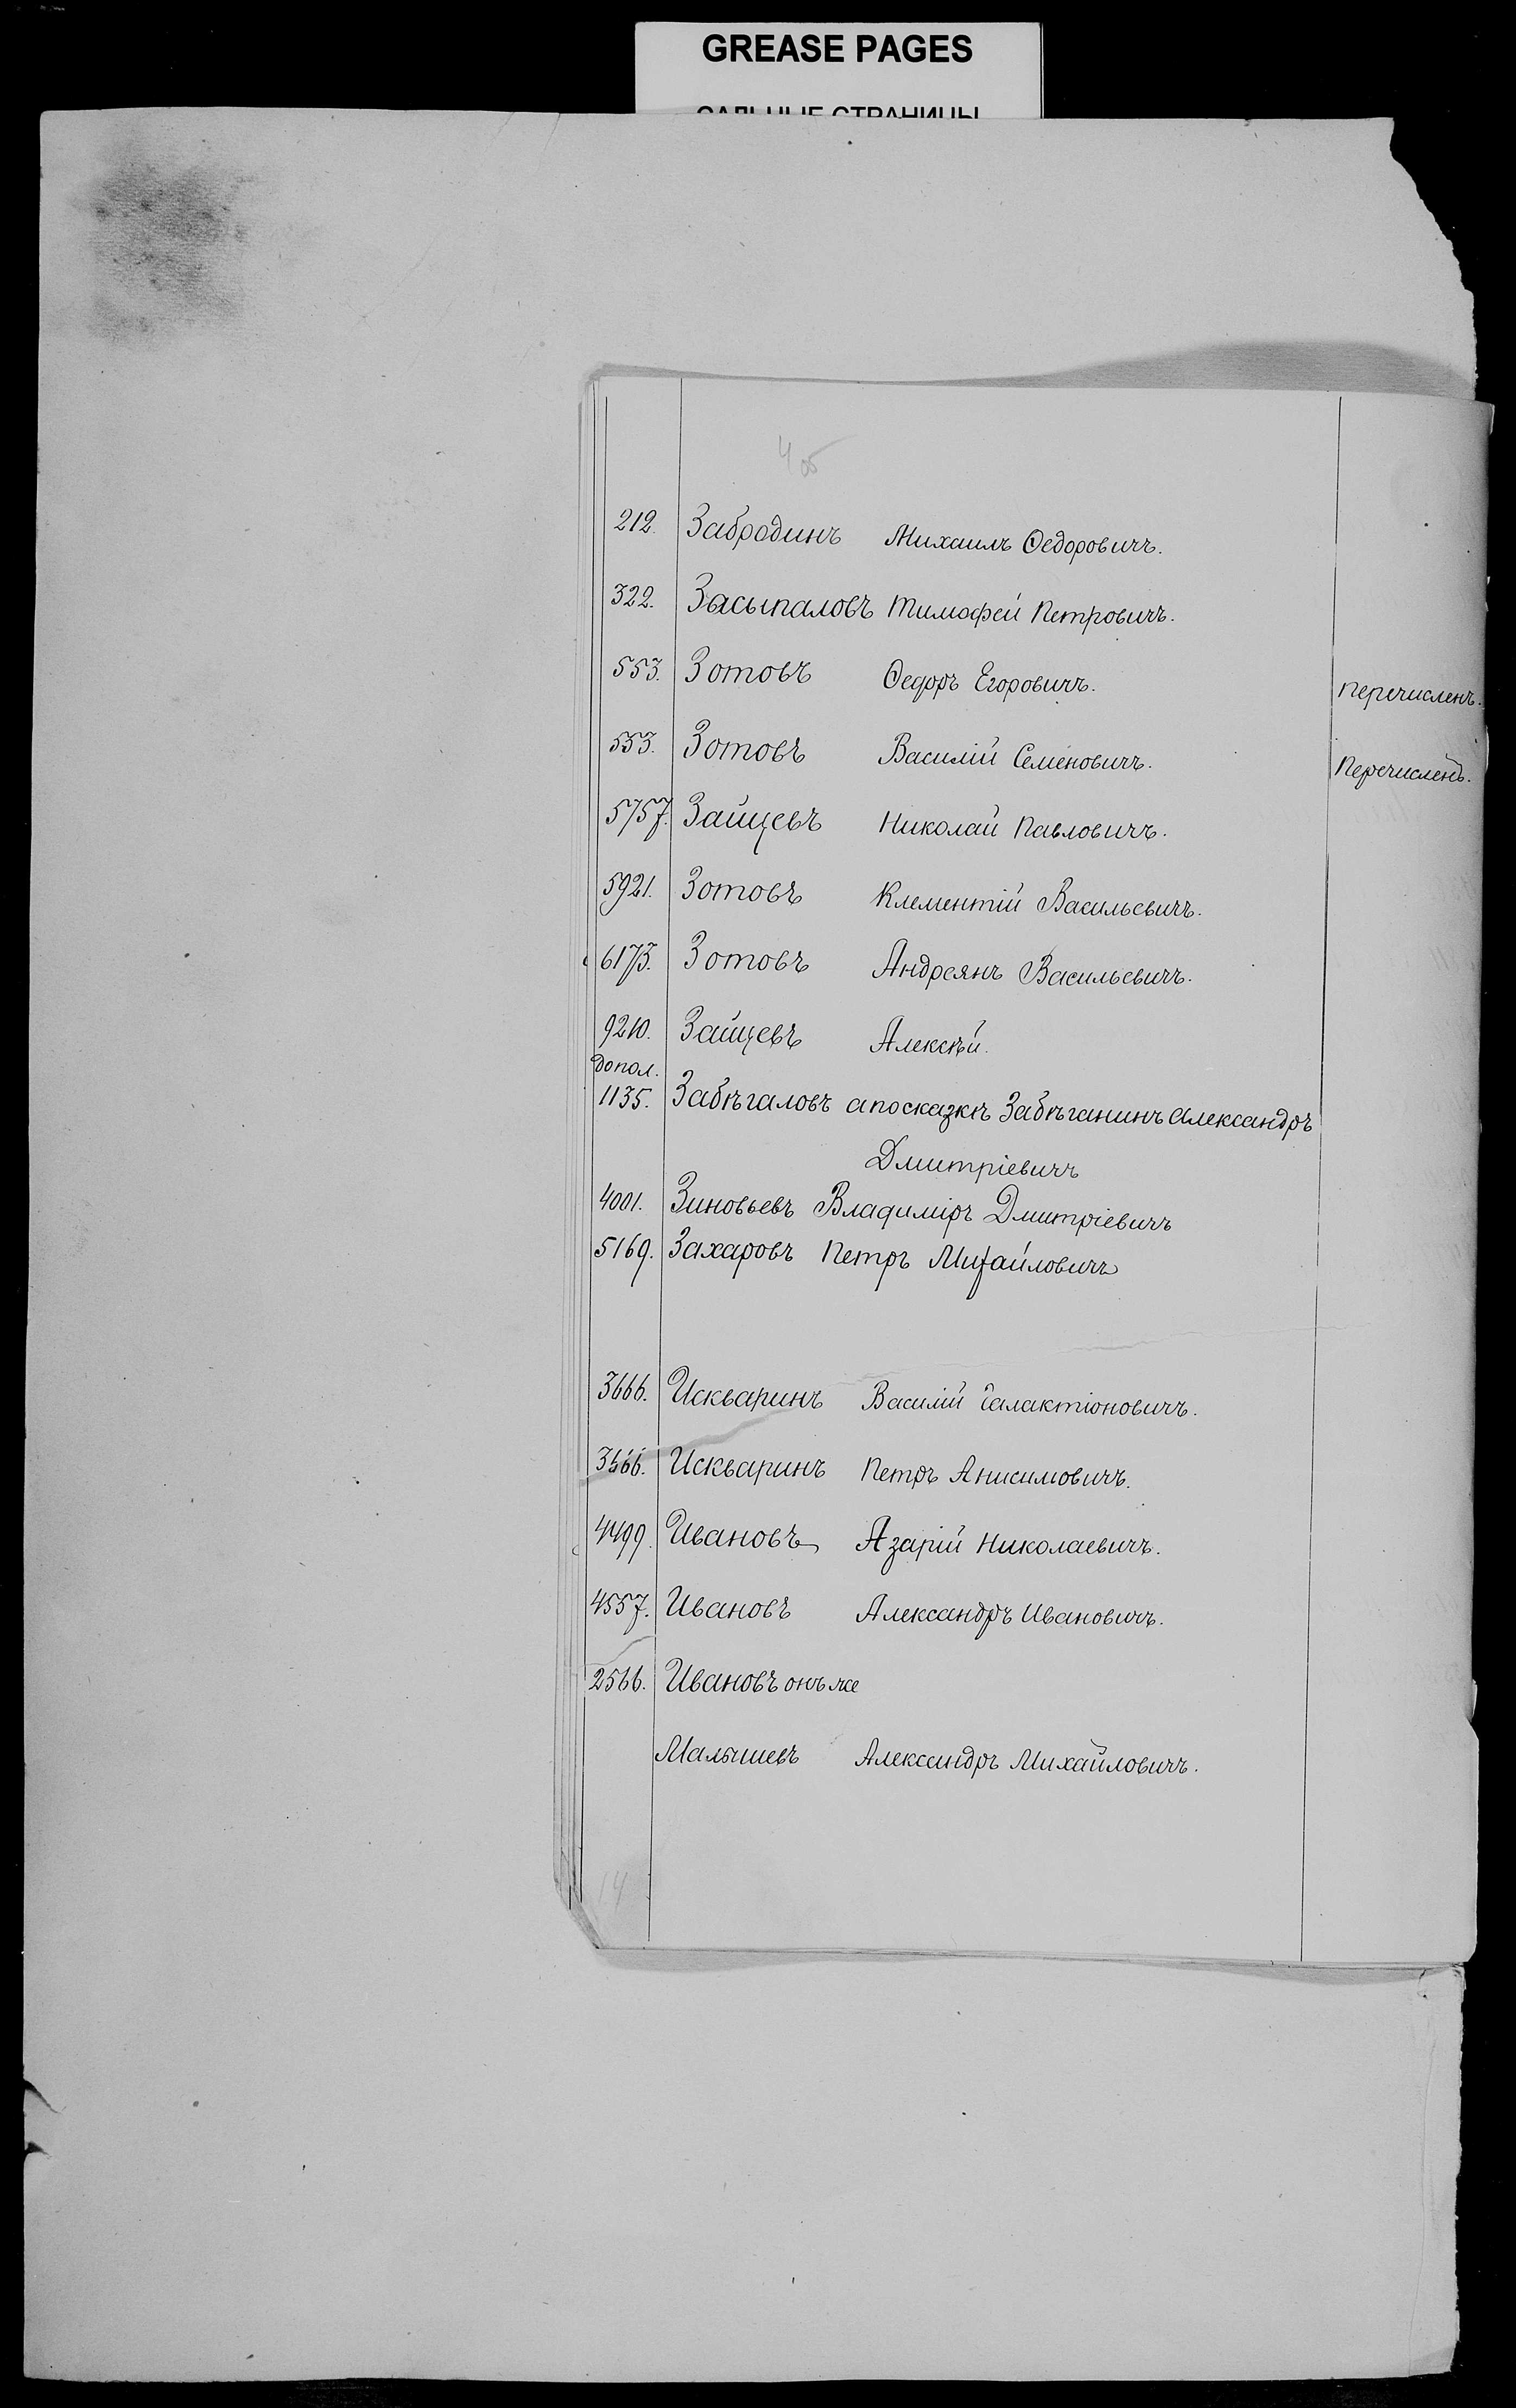 GREASE PAGES
САЛЬНЫЕ СТРАНИЦЫ
4 об
212. Забродинъ Михаилъ Ѳедоровичъ.
322. Засыпаловъ Тимофей Петровичъ.
553. Зотовъ Ѳедоръ Егоровичъ. Перечисленъ.
553. Зотовъ Василій Семеновичъ. Перечисленъ.
5757. Зайцевъ Николай Павловичъ.
5921. Зотовъ Клементій Васильевичъ.
6173. Зотовъ Андреянъ Васильевичъ.
9210. Зайцевъ Алексѣй.
Допол.
1135. Забѣгаловъ а по сказкѣ Забѣганинъ Александръ
Дмитріевичъ
4001. Зиновьевъ Владиміръ Дмитріевичъ
5169. Захаровъ Петръ Михайловичъ
3666. Искваринъ Василій Галактіоновичъ.
3666. Искваринъ Петръ Анисимовичъ.
4499. Ивановъ Азарій Николаевичъ.
4557. Ивановъ Александръ Ивановичъ.
2566. Ивановъ онъ же
Малышевъ Александръ Михайловичъ.
14